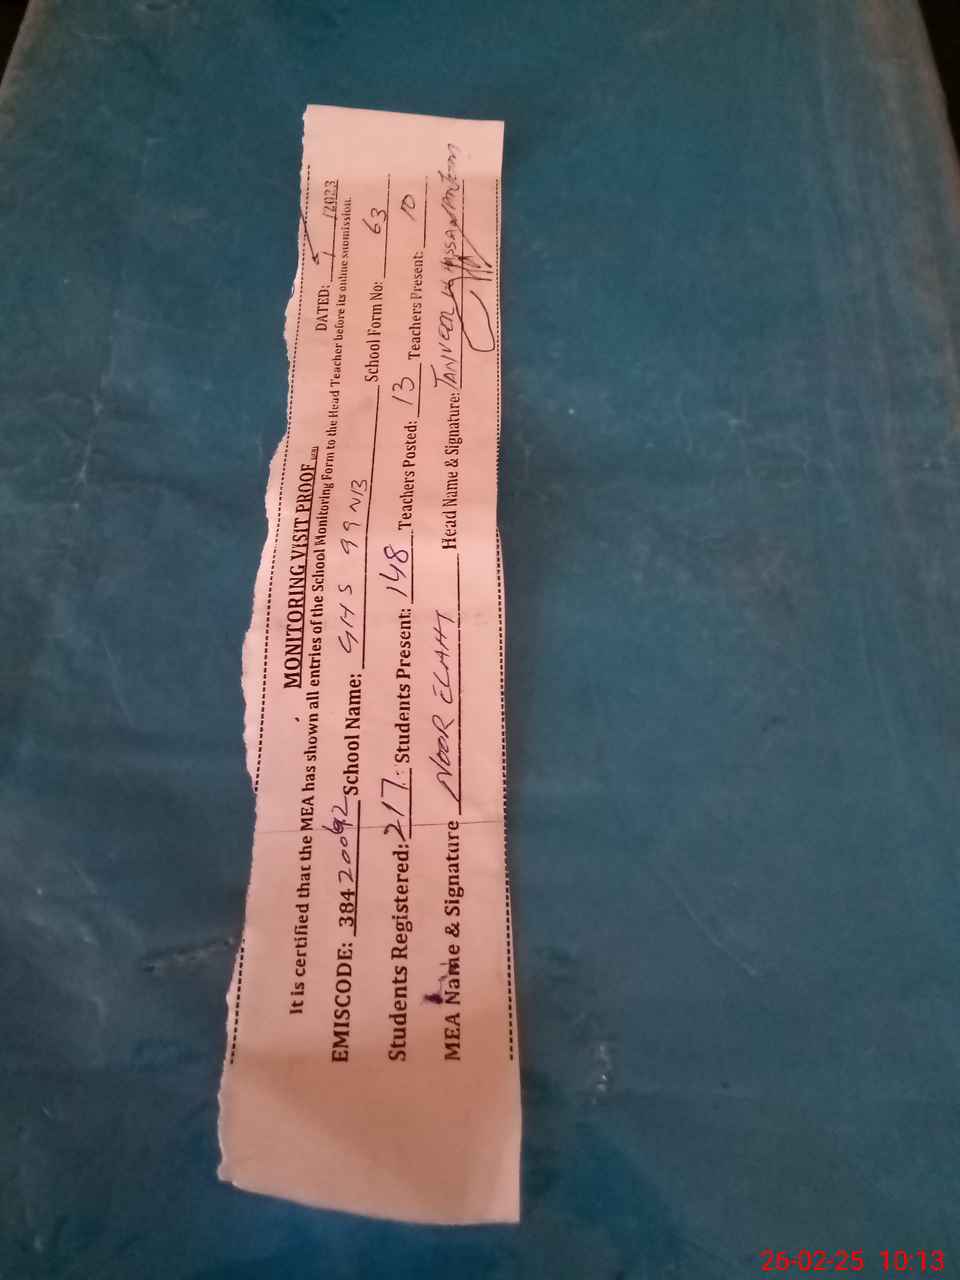 MONITORING VISIT PROOF
DATED: / /2023
It is certified that the MEA has shown all entries of the School Monitoring Form to the Head Teacher before its online submission.
EMISCODE: 38420092 School Name: GHS 99 NB School Form No: 63
Students Registered: 217 Students Present: 148 Teachers Posted: 13 Teachers Present: 10
MEA Name & Signature NOOR ELAHI Head Name & Signature: TANVEER HASSAN
26-02-25 10:13